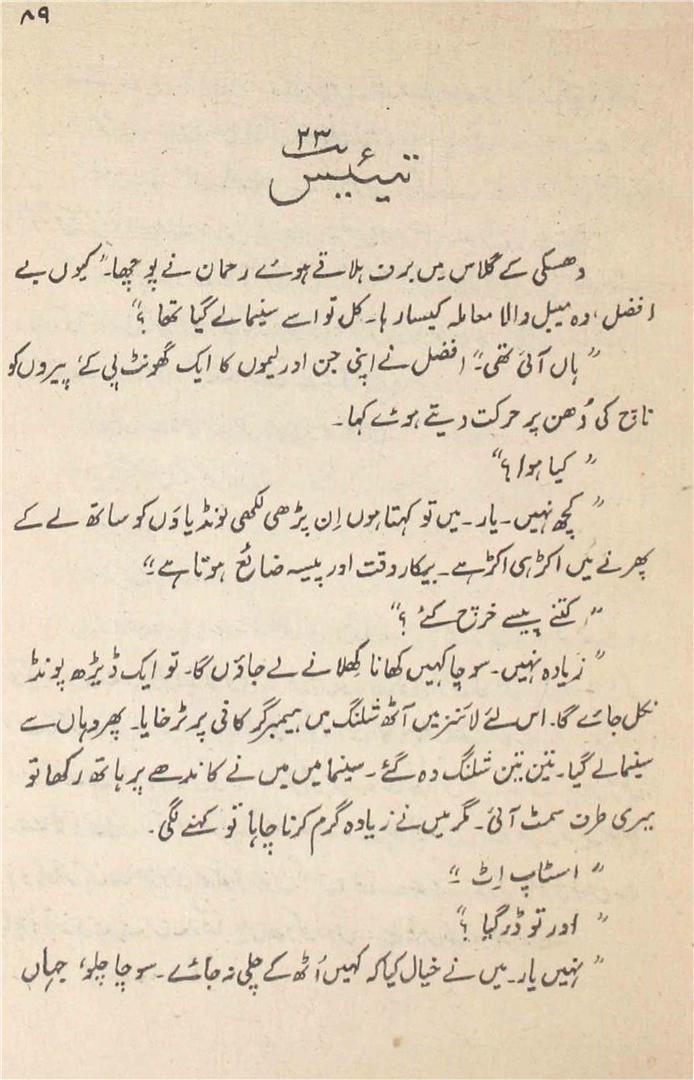 ۸۹
۲۳
تیئیس
وھسکی کے گلاس میں برف ہلاتے ہوئے رحمان نے پوچھا۔ "کیوں بے
افضل، وہ میبل والا معاملہ کیسا رہا۔ کل تو اسے سنیما لے گیا تھا ؟"
"ہاں آئی تھی۔" افضل نے اپنی جن اور لیموں کا ایک گھونٹ پی کے، پیروں کو
ناچ کی دُھن پر حرکت دیتے ہوئے کہا۔
"کیا ہوا؟"
"کچھ نہیں۔ یار۔ میں تو کہتا ہوں اِن پڑھی لکھی لونڈیاؤں کو ساتھ لے کے
پھرنے میں اکڑ ہی اکڑ ہے۔ بیکار وقت اور پیسہ ضائع ہوتا ہے۔"
"کتنے پیسے خرچ کئے ؟"
"زیادہ نہیں۔ سوچا کہیں کھانا کِھلانے لے جاؤں گا۔ تو ایک ڈیڑھ پونڈ
نکل جائے گا۔ اس لئے لائنز میں آٹھ شلنگ میں ہیمبرگر کافی پر ٹرخایا۔ پھر وہاں سے
سینما لے گیا۔ تین تین شلنگ وہ گئے۔ سینما میں میں نے کاندھے پر ہاتھ رکھا تو
میری طرف سمٹ آئی۔ مگر میں نے زیادہ گرم کرنا چاہا تو کہنے لگی۔
"اسٹاپ اِٹ۔"
"اور تو ڈر گیا ؟"
"نہیں یار۔ میں نے خیال کیا کہ کہیں اُٹھ کے چلی نہ جائے۔ سوچا چلو، جہاں